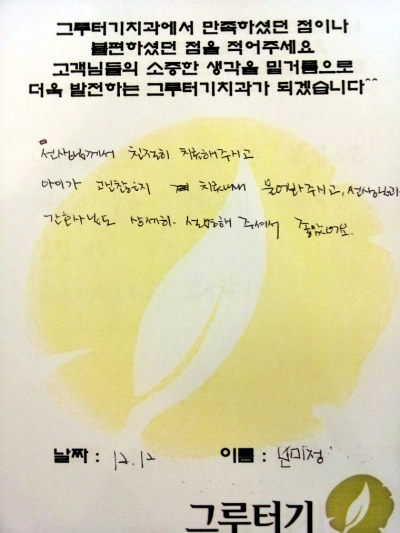 그루터기치과에서 만족하셨던 점이나
불편하셨던 점을 적어주세요
고객님들의 소중한 생각을 밑거름으로
더욱 발전하는 그루터기치과가 되겠습니다^^
선생님께서 친절히 치료해주시고
아이가 괜찮은지 치료내내 물어봐주시고, 선생님과
간호사님도 상세히 설명해 주셔서 좋았어요.
날짜 : 12.12 이름 : 미정
그루터기